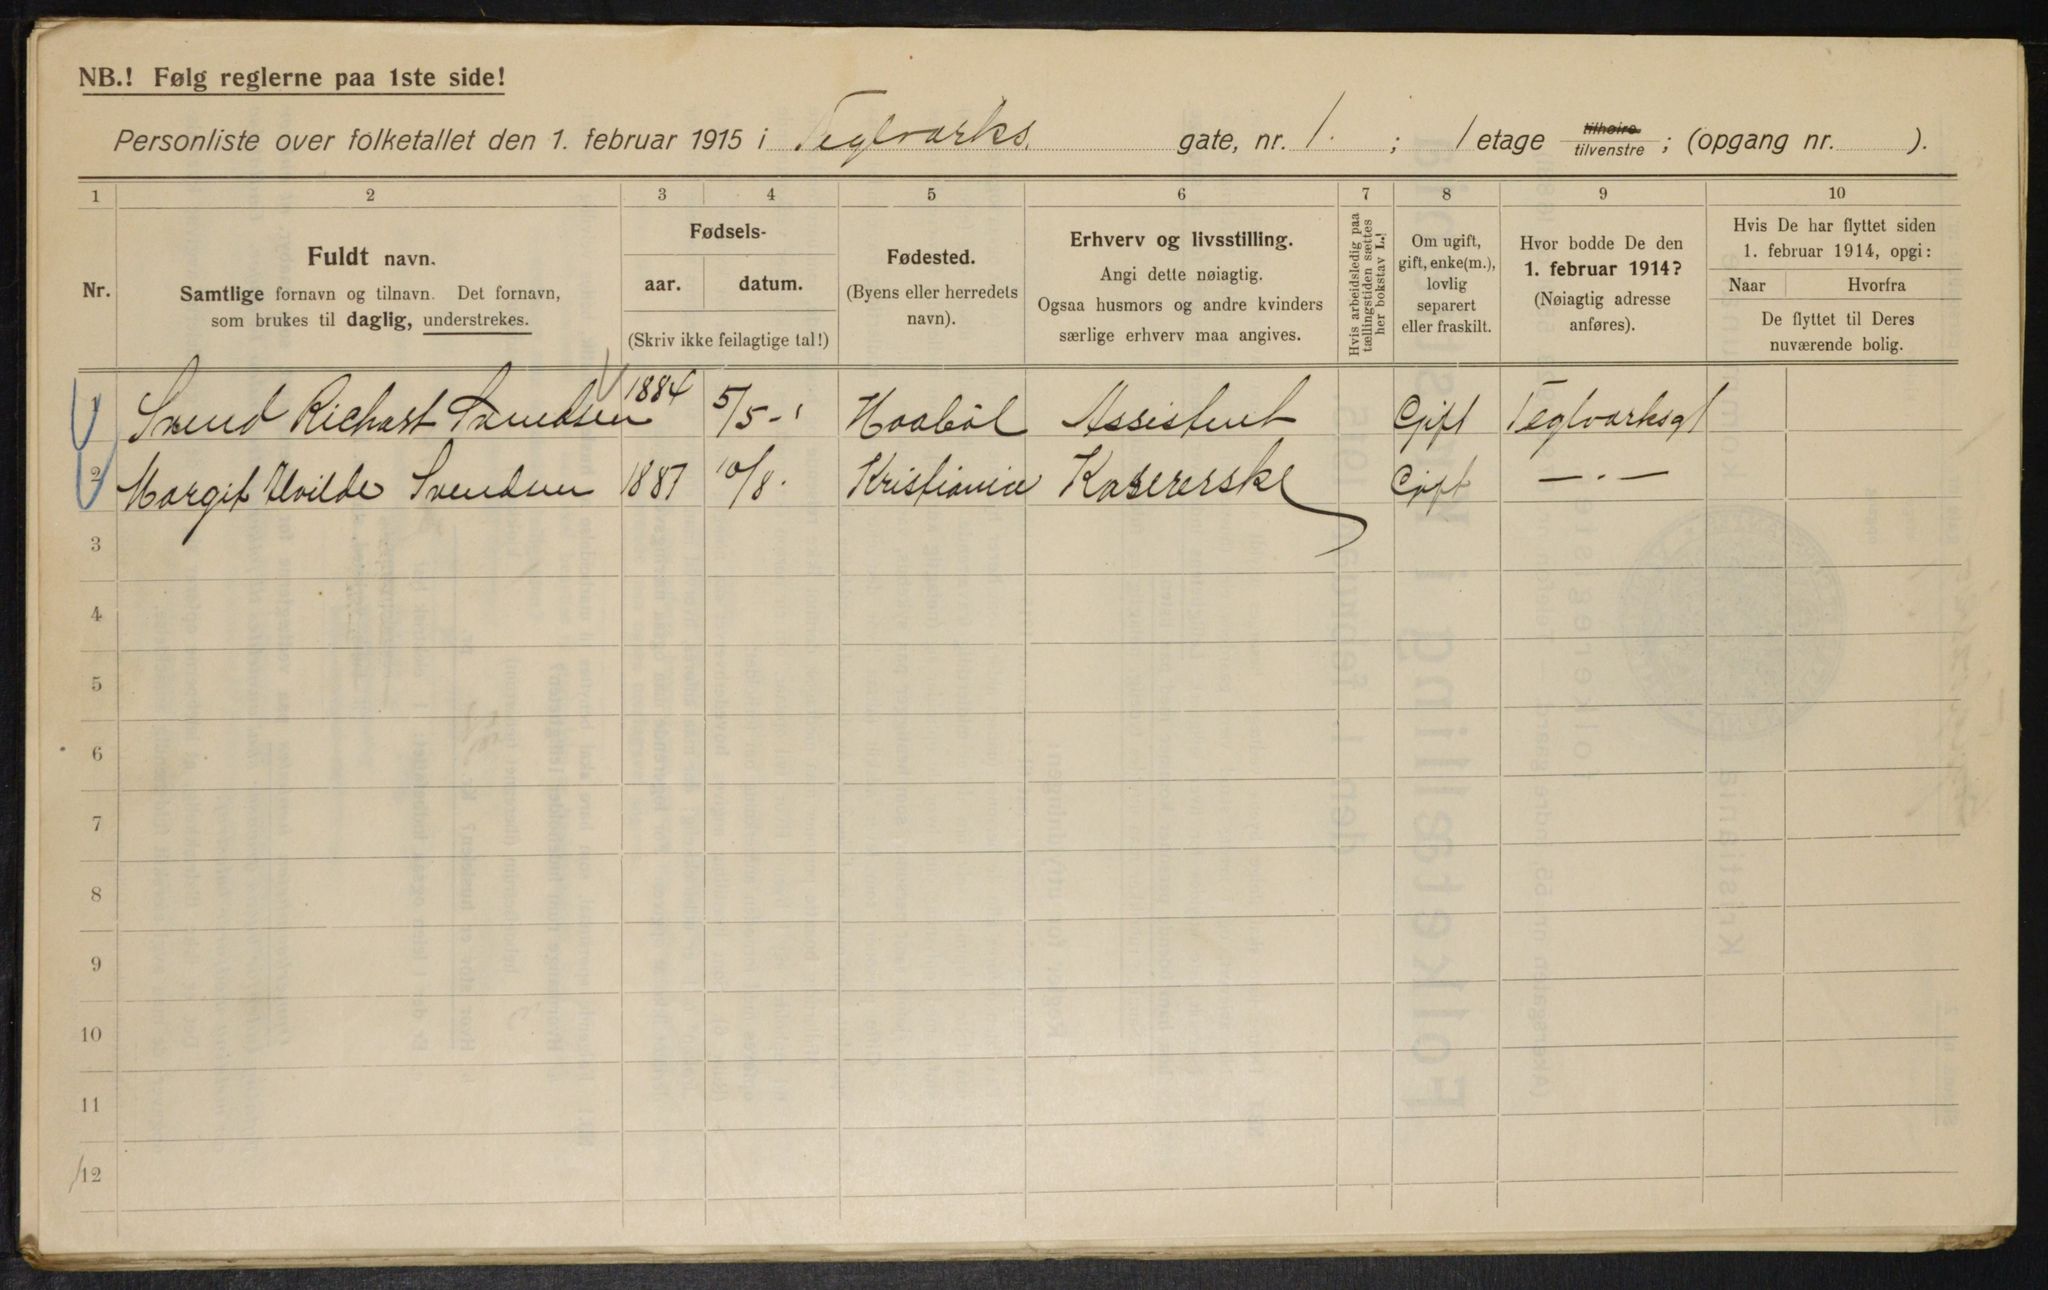 NB.! Følg reglerne paa 1ste side!
Personliste over folketallet den 1. februar 1915 i Teglværks. gate, nr. 1. ; 1 etage tilhøire tilvenstre ; (opgang nr. ).
1 2 3 4 5 6 7 8 9 10
Nr.
Fuldt navn.
Samtlige fornavn og tilnavn. Det fornavn,
som brukes til daglig, understrekes.
Fødsels-
aar. datum.
(Skriv ikke feilagtige tal!)
Fødested.
(Byens eller herredets
navn).
Erhverv og livsstilling.
Angi dette nøiagtig.
Ogsaa husmors og andre kvinders
særlige erhverv maa angives.
Hvis arbeidsledig paa
tællingstiden sættes
her bokstav L.!
Om ugift,
gift, enke(m.),
lovlig
separert
eller fraskilt.
Hvor bodde De den
1. februar 1914?
(Nøiagtig adresse
anføres).
Hvis De har flyttet siden
1. februar 1914, opgi:
Naar Hvorfra
De flyttet til Deres
nuværende bolig.
1 Svend Richart Svendsen 1884 5/5 - Haabøl Assistent Gift Teglværksgt
2 Margit Svendsen 1887 10/8. Kristiania Kasererske Gift — . —
3
4
5
6
7
8
9
10
11
12